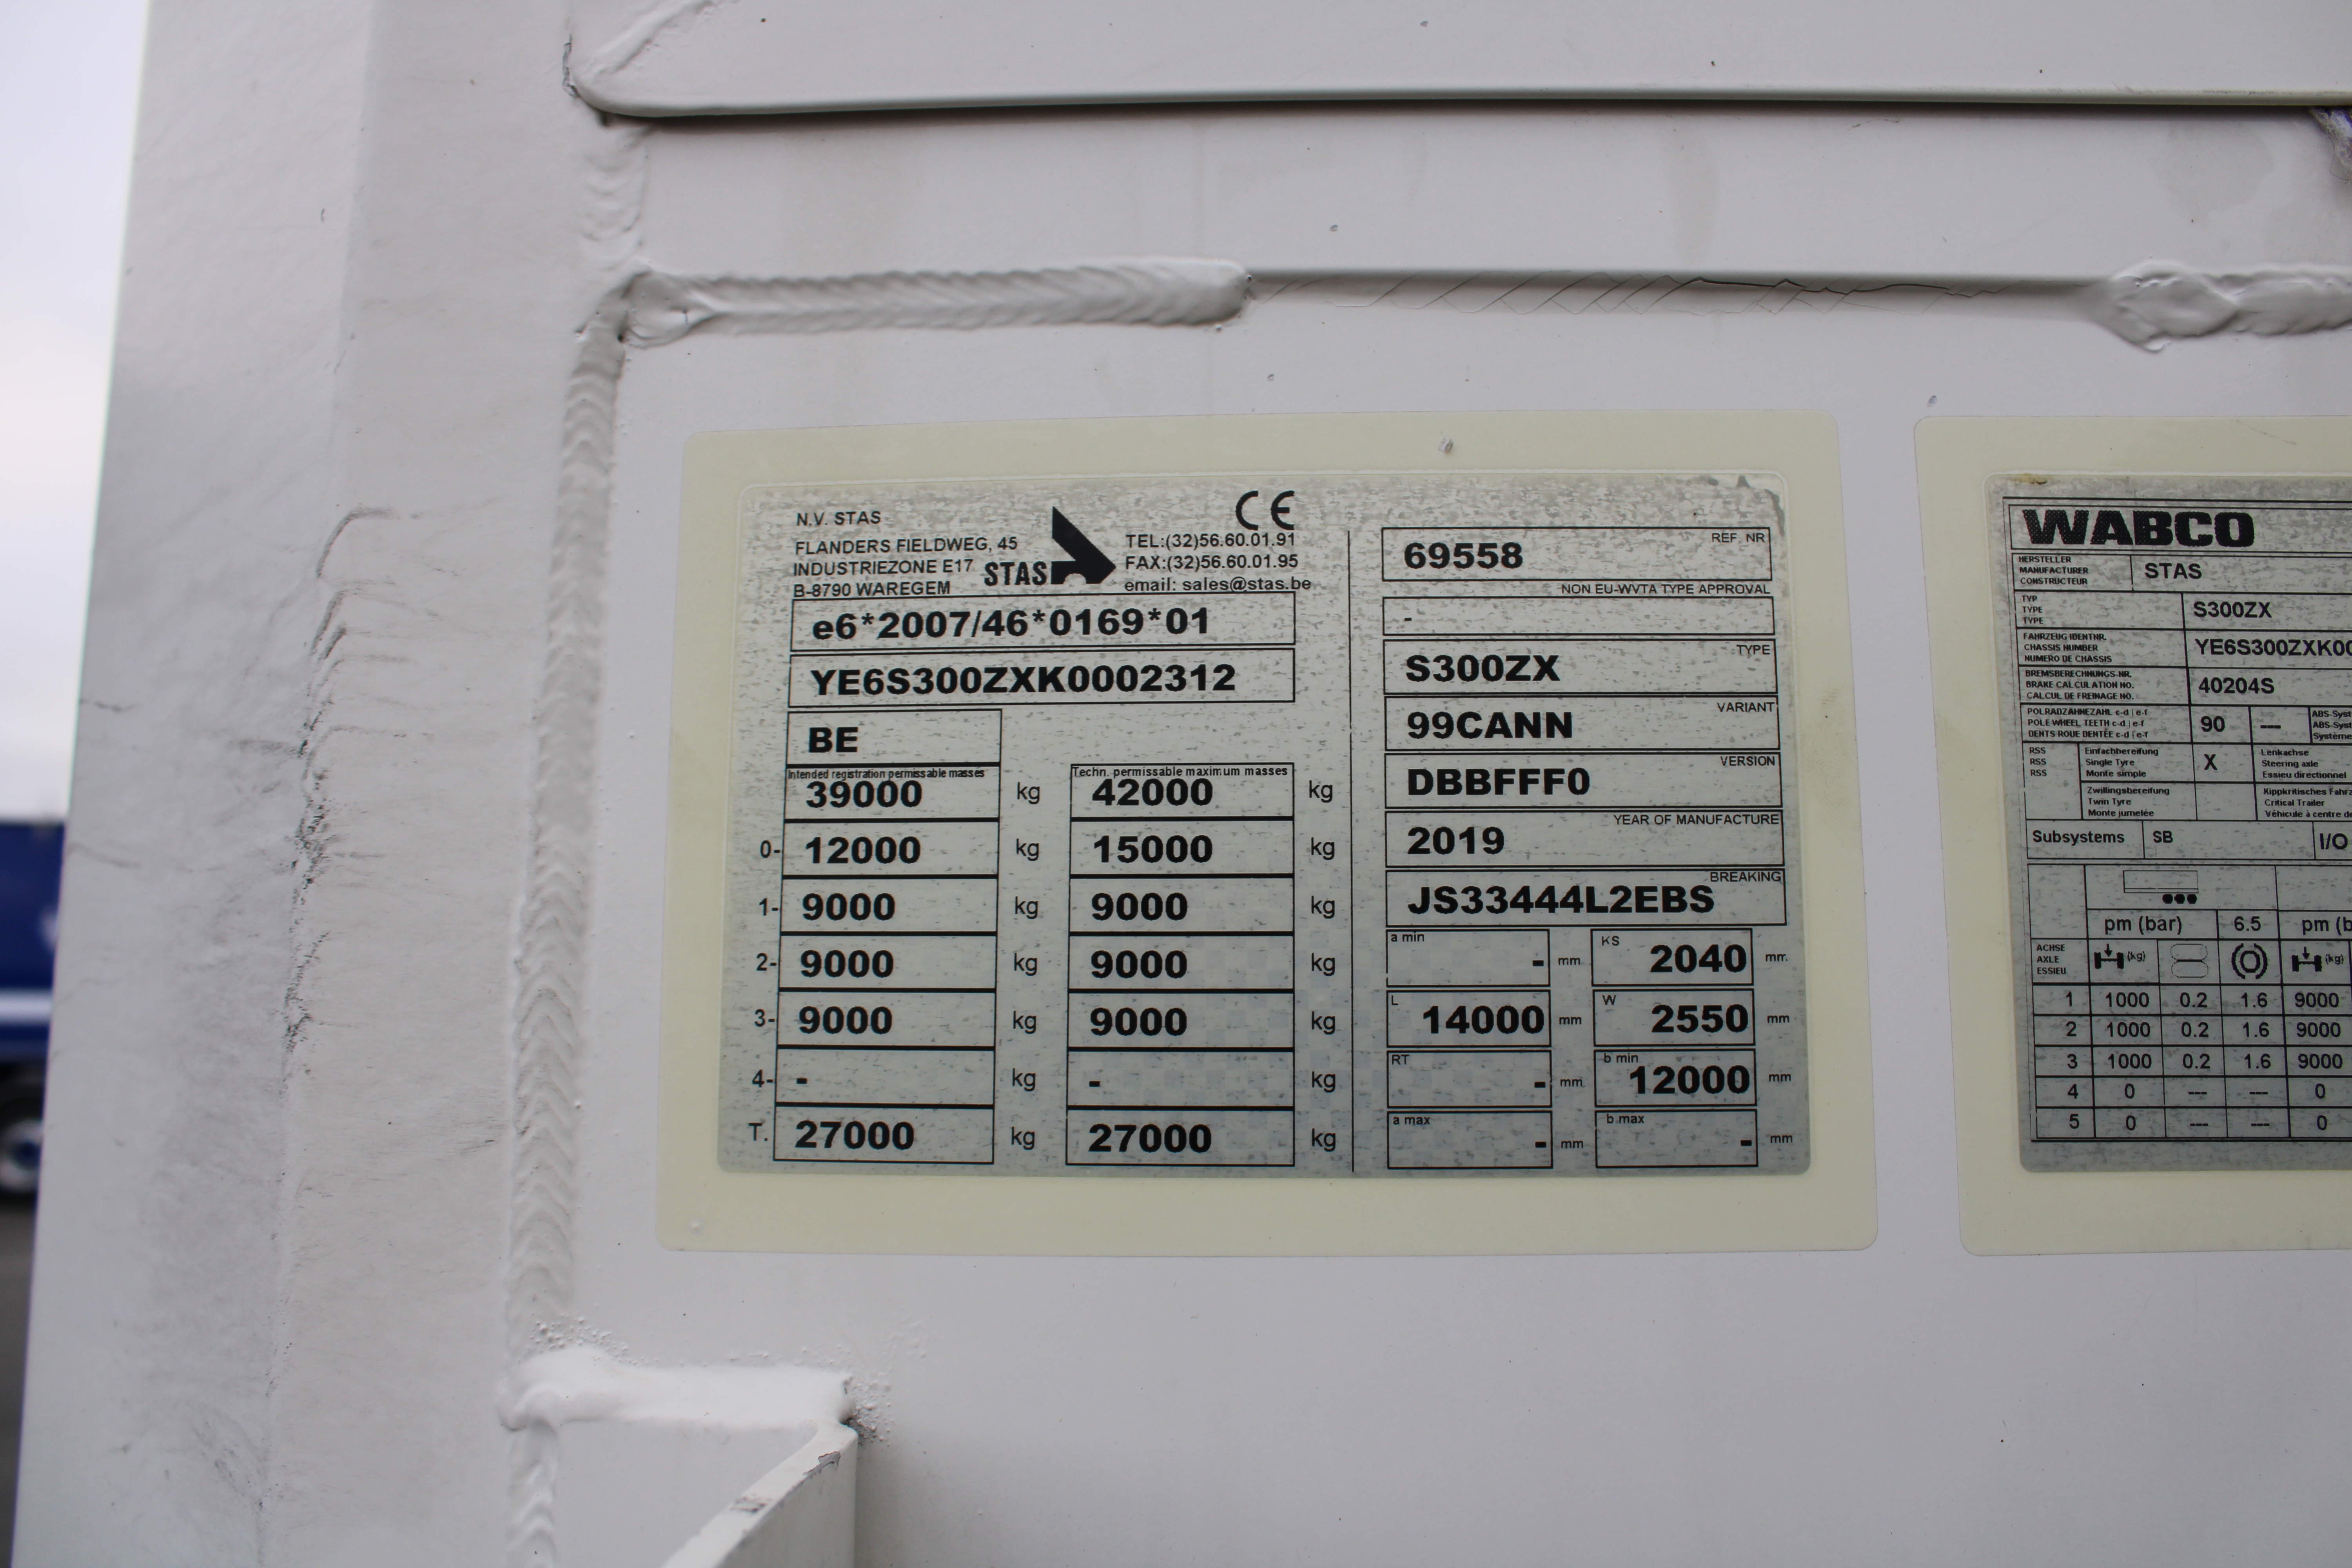 N.V. STAS
FLANDERS FIELDWEG, 45
INDUSTRIEZONE E17
B-8790 WAREGEM
STAS
CE
TEL:(32)56.60.01.91
FAX:(32)56.60.01.95
email: sales@stas.be
e6*2007/46*0169*01
YE6S300ZXK0002312
BE
Intended registration permissable masses
39000 kg
Techn. permissable maximum masses
42000 kg
0- 12000 kg 15000 kg
1- 9000 kg 9000 kg
2- 9000 kg 9000 kg
3- 9000 kg 9000 kg
4- - kg - kg
T. 27000 kg 27000 kg
REF. NR
69558
NON EU-WVTA TYPE APPROVAL
-
TYPE
S300ZX
VARIANT
99CANN
VERSION
DBBFFF0
YEAR OF MANUFACTURE
2019
BREAKING
JS33444L2EBS
a min - mm KS 2040 mm
L 14000 mm W 2550 mm
RT - mm b min 12000 mm
a max - mm b max - mm
WABCO
HERSTELLER
MANUFACTURER
CONSTRUCTEUR
STAS
TYP
TYPE
TYPE
S300ZX
FAHRZEUG IDENTNR.
CHASSIS NUMBER
NUMERO DE CHASSIS
YE6S300ZXK00
BREMSBERECHNUNGS-NR.
BRAKE CALCULATION NO.
CALCUL DE FREINAGE NO.
40204S
POLRADZÄHNEZAHL c-d | e-f
POLE WHEEL TEETH c-d | e-f
DENTS ROUE DENTÉE c-d | e-f
90 ---
ABS-Syst
ABS-Syst
Système
RSS
RSS
RSS
Einfachbereifung
Single Tyre
Monte simple
X
Lenkachse
Steering axle
Essieu directionnel
Zwillingsbereifung
Twin Tyre
Monte jumelée
Kippkritisches Fahrz
Critical Trailer
Véhicule à centre de
Subsystems SB I/O
pm (bar) 6.5 pm (b
ACHSE
AXLE
ESSIEU
(kg) (kg)
1 1000 0.2 1.6 9000
2 1000 0.2 1.6 9000
3 1000 0.2 1.6 9000
4 0 --- --- 0
5 0 --- --- 0